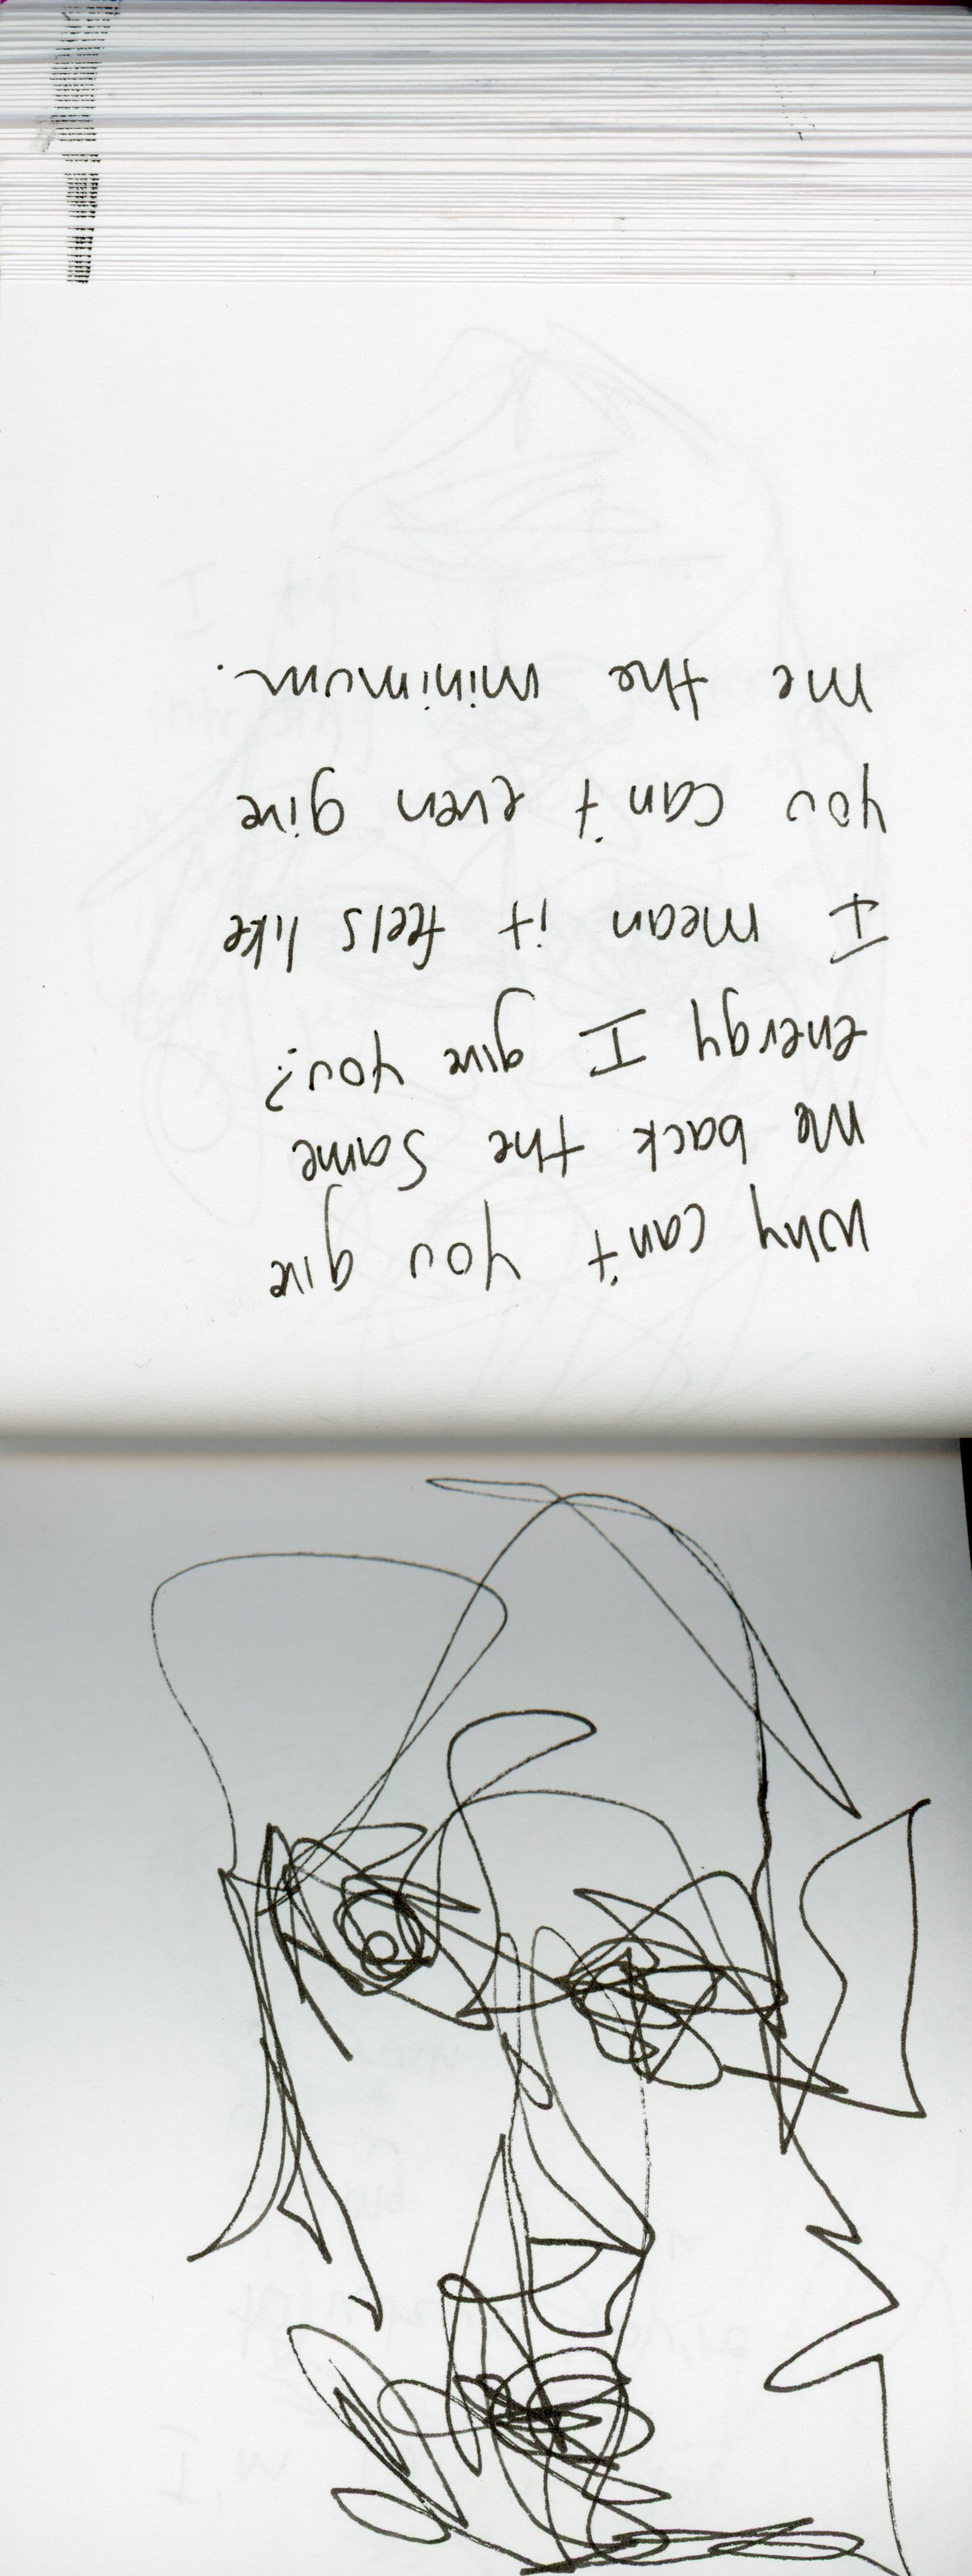 Why can't you give
me back the same
energy I give you?
I mean it feels like
you can't even give
me the minimum.